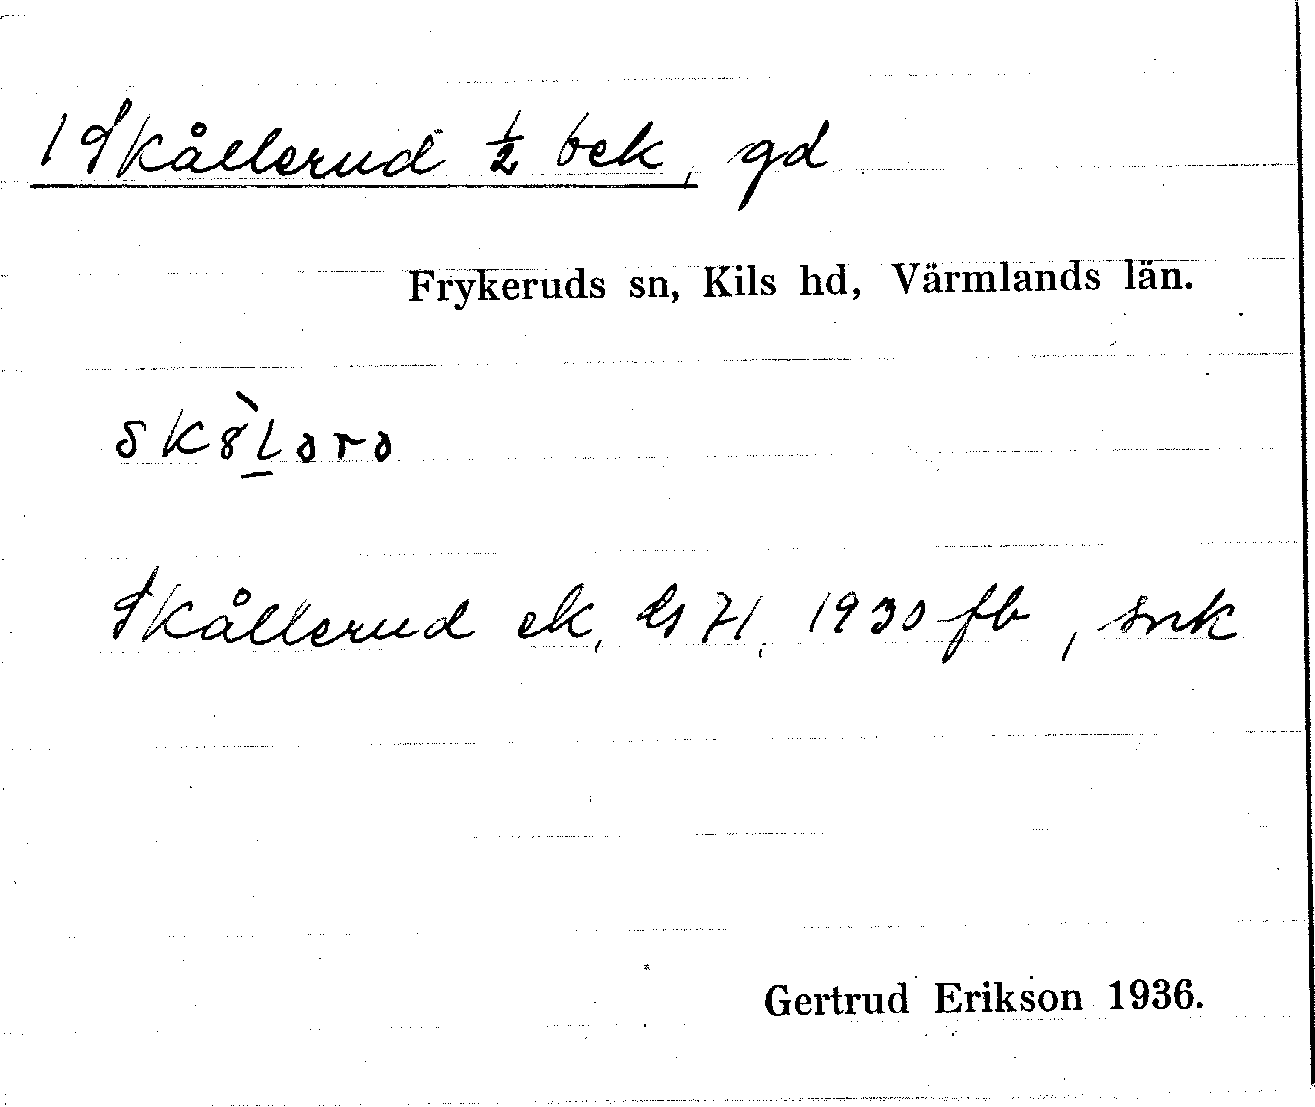 1 Skållerud ½ bek, gd
Frykeruds sn, Kils hd, Värmlands län.
Skållerud ek, ls 71, 1930 fb, snk
Gertrud Erikson 1936.